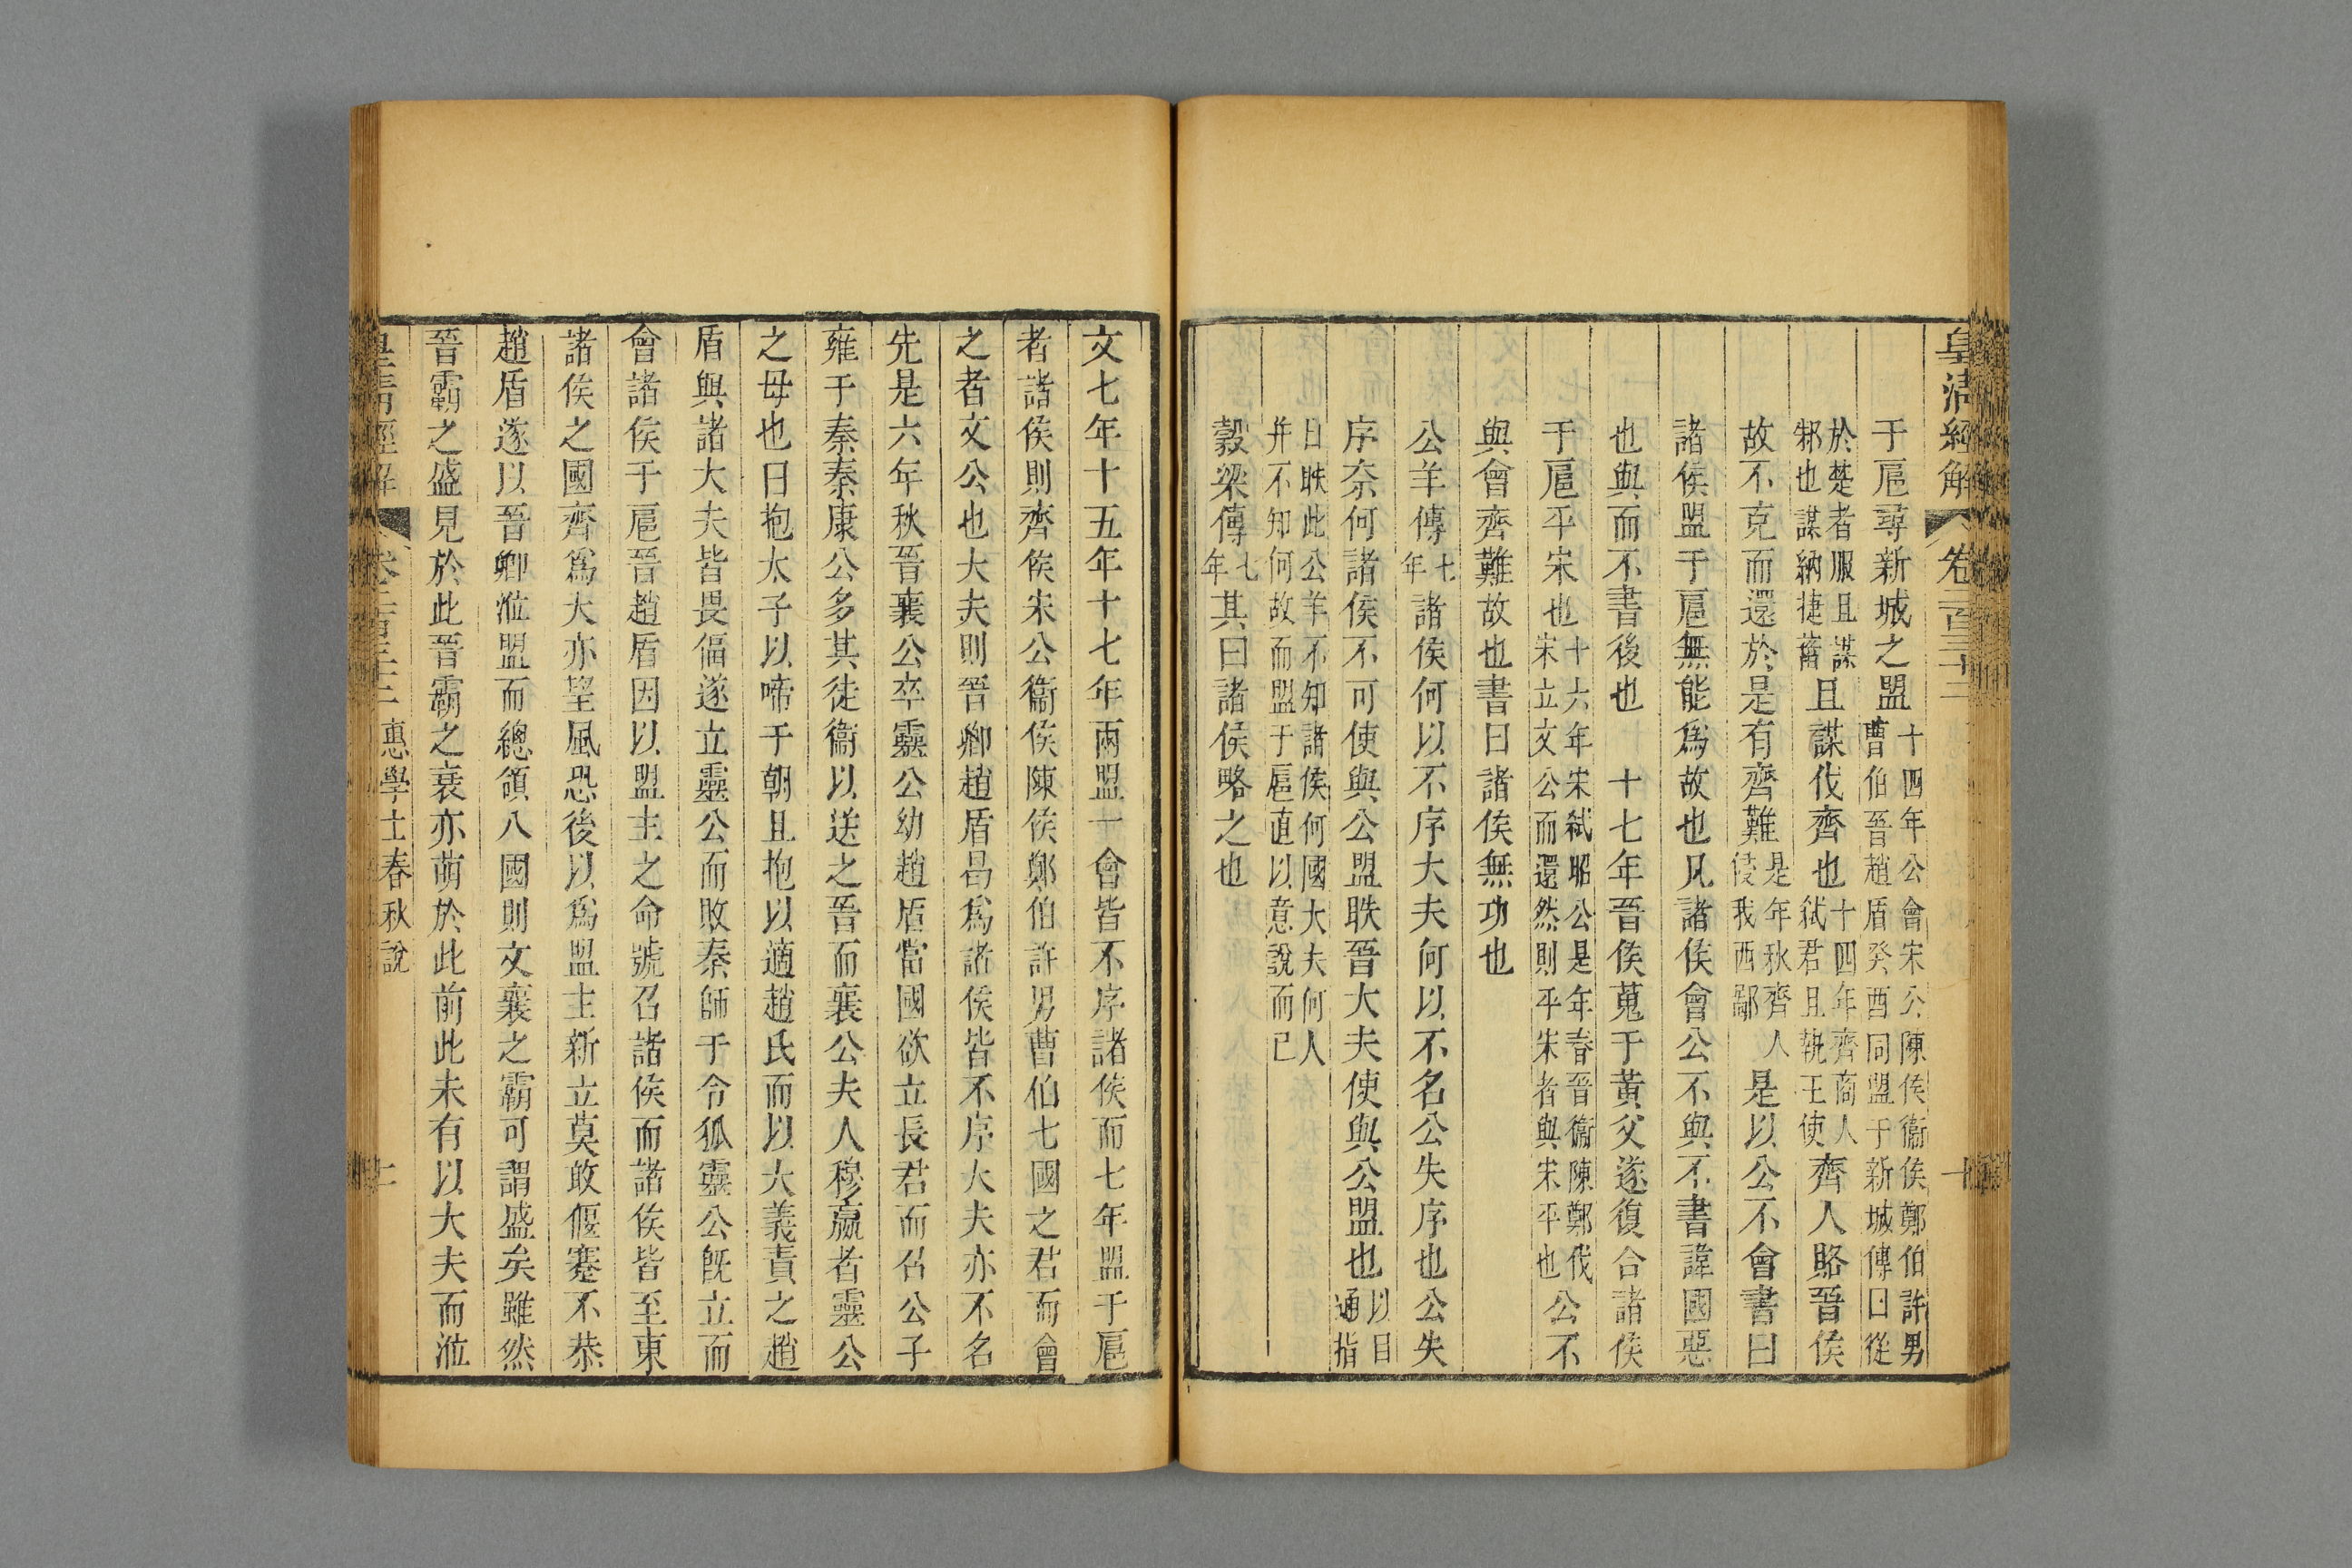 皇清經解 卷二百三十二 十
于扈尋新城之盟十四年公會宋公陳侯衞侯鄭伯許男曹伯晉趙盾癸酉同盟于新城傳曰從
於楚者服且謀邾也謀納捷菑且謀伐齊也十四年齊商人弑君且執王使齊人賂晉侯
故不克而還於是有齊難是年秋齊人侵我西鄙是以公不會書曰
諸侯盟于扈無能爲故也凡諸侯會公不與不書諱國惡
也與而不書後也 十七年晉侯蒐于黃父遂復合諸侯
于扈平宋也十六年宋弑昭公是年春晉衞陳鄭伐宋立文公而還然則平宋者與宋平也公不
與會齊難故也書曰諸侯無功也
公羊傳七年諸侯何以不序大夫何以不名公失序也公失
序奈何諸侯不可使與公盟眣晉大夫使與公盟也以目通指
曰眣此公羊不知諸侯何國大夫何人并不知何故而盟于扈直以意說而已
穀梁傳七年其曰諸侯略之也
文七年十五年十七年兩盟一會皆不序諸侯而七年盟于扈
者諸侯則齊侯宋公衞侯陳侯鄭伯許男曹伯七國之君而會
之者文公也大夫則晉卿趙盾曷爲諸侯皆不序大夫亦不名
先是六年秋晉襄公卒靈公幼趙盾當國欲立長君而召公子
雍于秦秦康公多其徒衞以送之晉而襄公夫人穆嬴者靈公
之母也日抱太子以啼于朝且抱以適趙氏而以大義責之趙
盾與諸大夫皆畏偪遂立靈公而敗秦師于令狐靈公旣立而
會諸侯于扈晉趙盾因以盟主之命號召諸侯而諸侯皆至東
諸侯之國齊爲大亦望風恐後以爲盟主新立莫敢偃蹇不恭
趙盾遂以晉卿涖盟而總領八國則文襄之霸可謂盛矣雖然
晉霸之盛見於此晉霸之衰亦萌於此前此未有以大夫而涖
皇清經解 卷二百三十二 惠學士春秋說